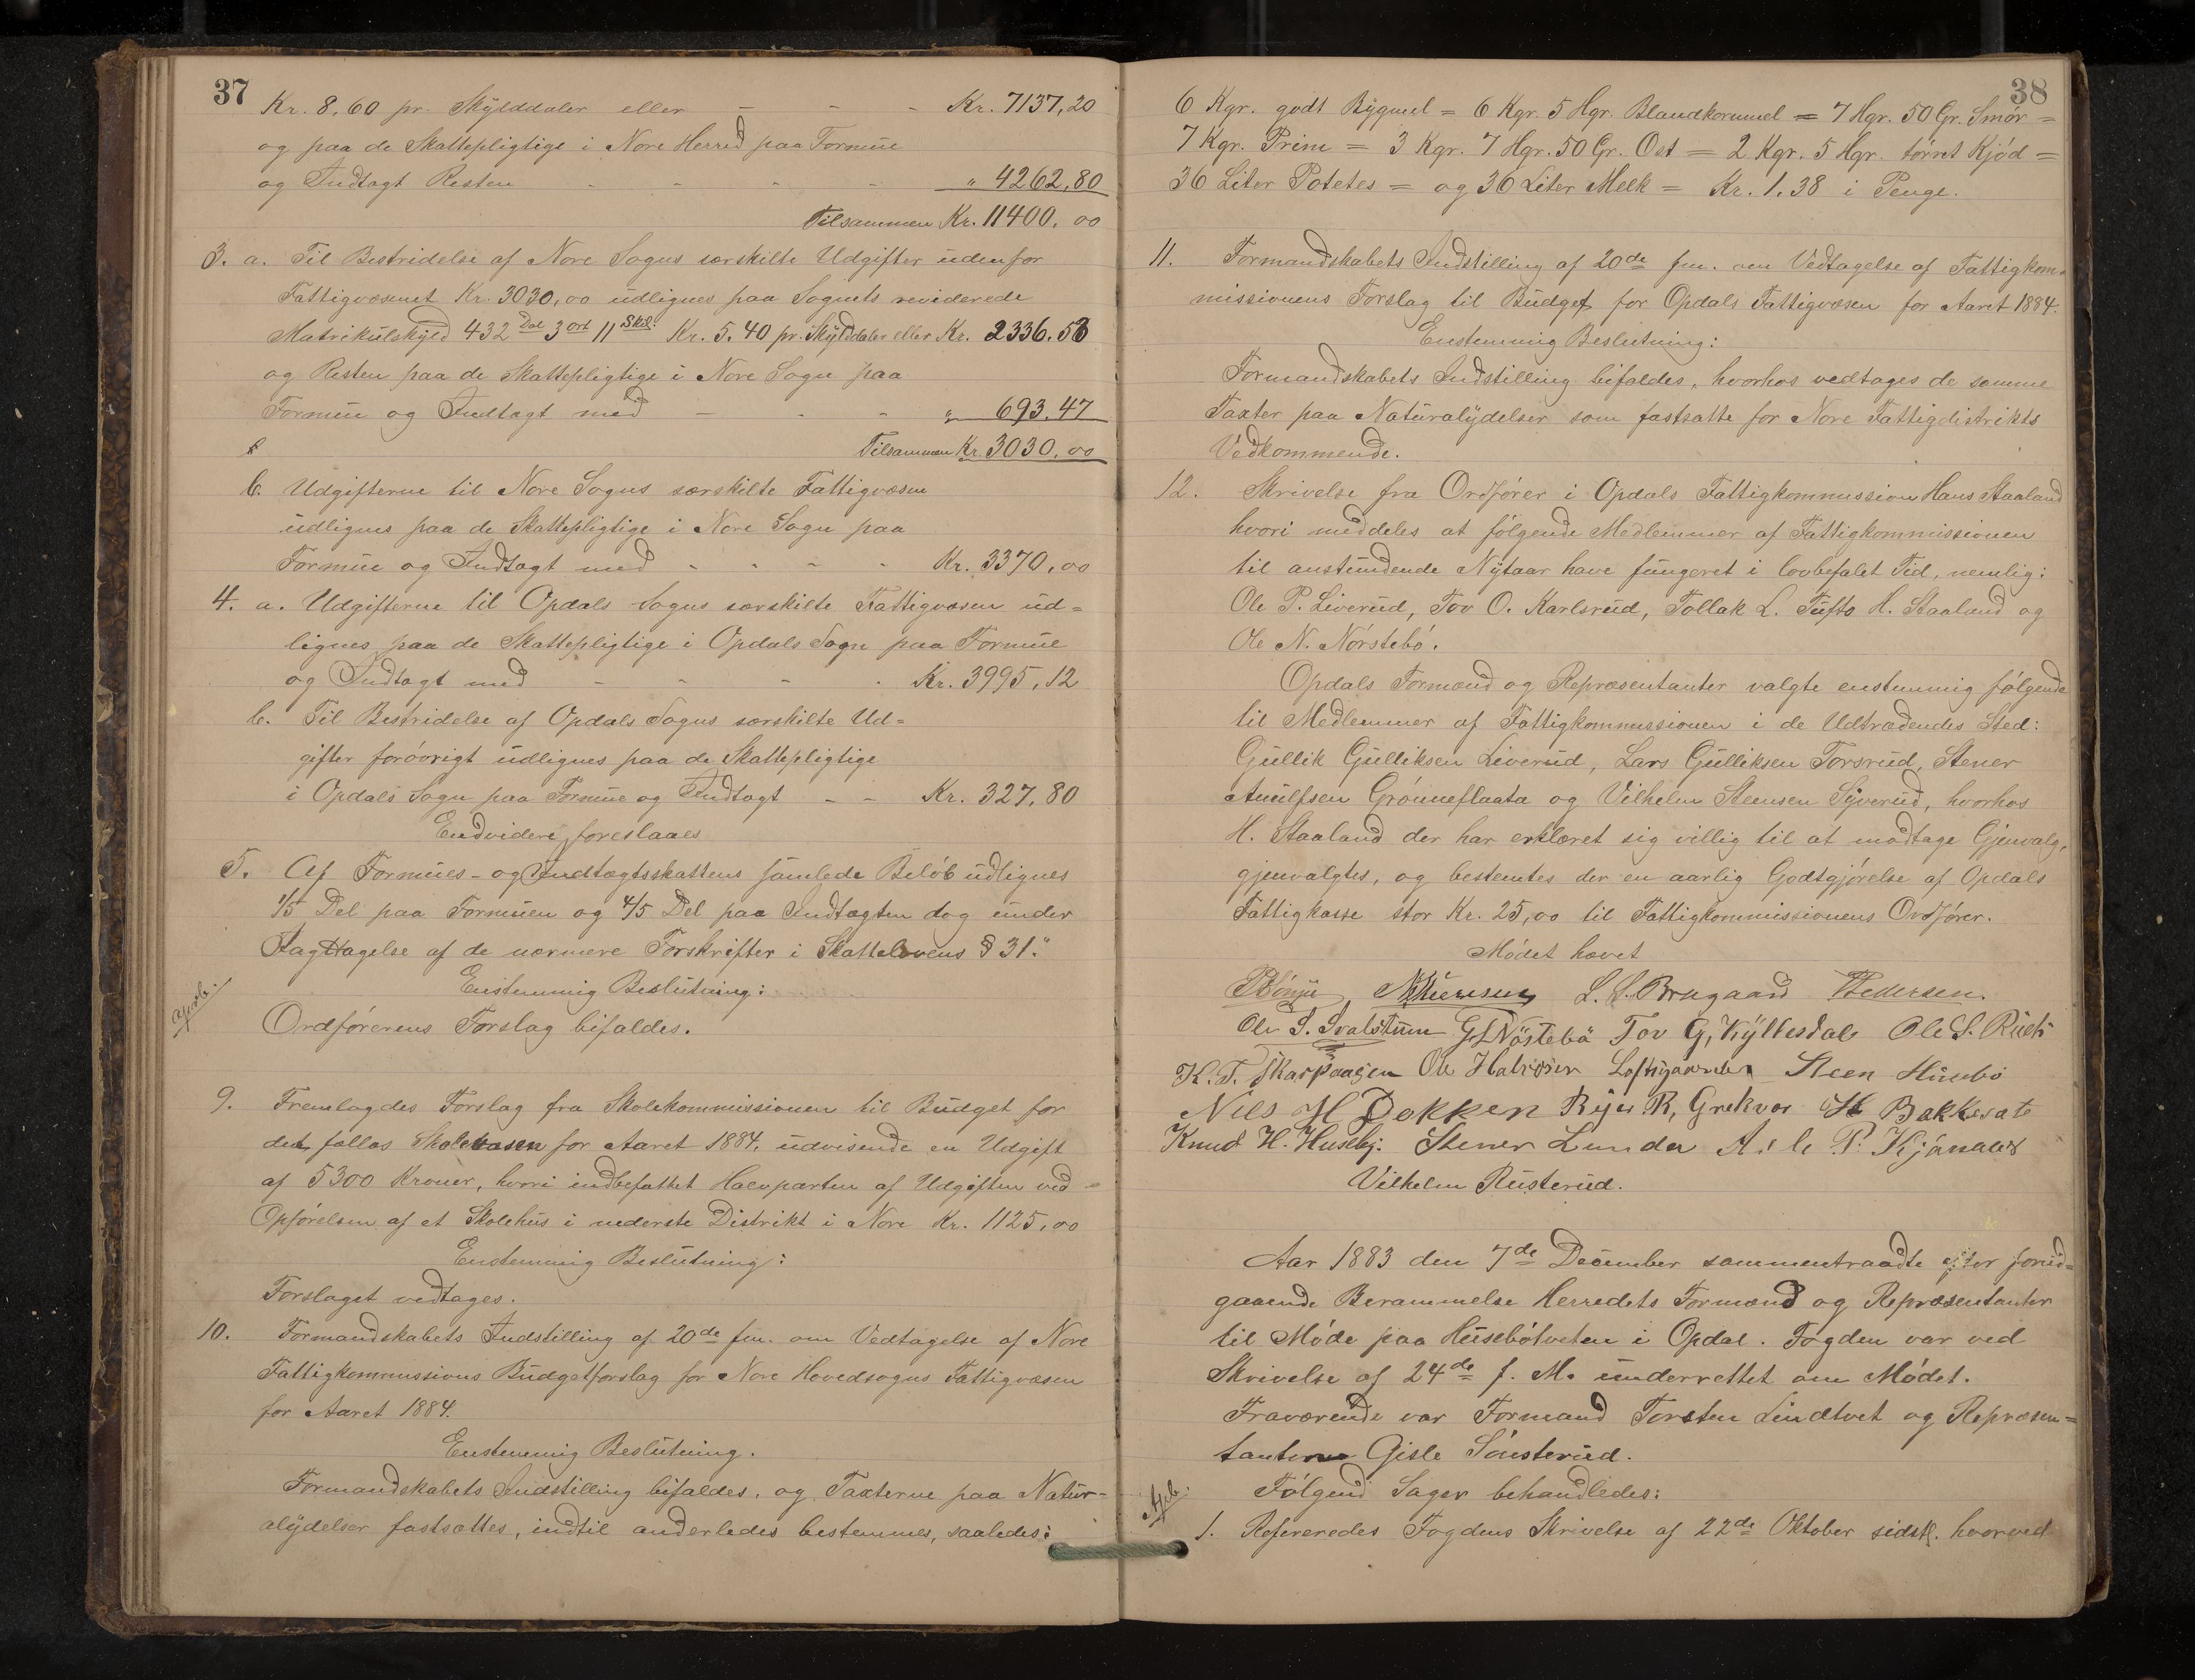 37
Kr. 8,60 pr. Skylddaler eller - - - Kr. 7137,20
og paa de Skattepligtige i Nore Herred paa Formue
og Indtægt Resten - - - - " 4262,80
Tilsammen Kr. 11400,00
3. a. Til Bestridelse af Nore Sogns særskilte Udgifter udenfor
Fattigvæsenet Kr. 3030,00 udlignes paa Sognets reviderede
Matrikulskyld 432 Dal 3 ort 11 Skil: Kr. 5.40 pr. Skylddaler eller Kr. 2336.53
og Resten paa de Skattepligtige i Nore Sogn paa
Formue og Indtægt med - - - " 693.47
Tilsammen Kr. 3030,00
b. Udgifterne til Nore Sogns særskilte Fattigvæsen
udlignes paa de Skattepligtige i Nore Sogn paa
Formue og Indtægt med - - - - Kr. 3370,00
4. a. Udgifterne til Opdals Sogns særskilte Fattigvæsen ud=
lignes paa de Skattepligtige i Opdals Sogn paa Formue
og Indtægt med - - - - Kr. 3995,12
b. Til Bestridelse af Opdals Sogns særskilte Ud=
gifter forøvrigt udlignes paa de Skattepligtige
i Opdals Sogn paa Formue og Indtægt - - Kr. 327,80
Endvidere foreslaaes
5. Af Formues- og Indtægtsskattens samlede Beløb udlignes
1/5 Del paa Formuen og 4/5 Del paa Indtægten dog under
Iagttagelse af de nærmere Forskrifter i Skattelovens § 31."
Enstemmig Beslutning:
Ordførerens Forslag bifaldes.
9. Fremlagdes Forslag fra Skolekommissionen til Budget for
det fælles Skolevæsen for Aaret 1884, udvisende en Udgift
af 5300 Kroner, hvori indbefattet Halvparten af Udgiften ved
Opførelsen af et Skolehus i nederste Distrikt i Nore Kr. 1125,00
Enstemmig Beslutning:
Forslaget vedtages.
10. Formandskabets Indstilling af 20de ftn. om Vedtagelse af Nore
Fattigkommissions Budgetforslag for Nore Hovedsogns Fattigvæsen
for Aaret 1884.
Enstemmig Beslutning.
Formandskabets Indstilling bifaldes, og Taxterne paa Natur=
alydelser fastsættes, indtil anderledes bestemmes, saaledes:
38
6 Kgr. godt Bygmel = 6 Kgr. 5 Hgr. Blandkornmel = 7 Hgr. 50 Gr. Smør =
7 Kgr. Prim = 3 Kgr. 7 Hgr. 50 Gr. Ost = 2 Kgr. 5 Hgr. tørret Kjød =
36 Liter Potetes = og 36 Liter Melk = Kr. 1.38 i Penge.
11. Formandskabets Indstilling af 20de ftn. om Vedtagelse af Fattigkom=
missionens Forslag til Budget for Opdals Fattigvæsen for Aaret 1884.
Enstemmig Beslutning:
Formandskabets Indstilling bifaldes, hvorhos vedtages de samme
Taxter paa Naturalydelser som fastsatte for Nore Fattigdistrikts
Vedkommende.
12. Skrivelse fra Ordfører i Opdals Fattigkommission Hans Staaland
hvori meddeles at følgende Medlemmer af Fattigkommissionen
til anstundende Nytaar have fungeret i lovbefalet Tid, nemlig:
Ole P. Liverud, Tov O. Karlsrud, Tollak L. Tufto H. Staaland og
Ole N. Nørstebø.
Opdals Formænd og Repræsentanter valgte enstemmig følgende
til Medlemmer af Fattigkommissionen i de Udtrædendes Sted:
Gullik Gulliksen Liverud, Lars Gulliksen Torsrud, Stener
Anulfsen Grønneflaata og Vilhelm Steensen Syverud, hvorhos
H. Staaland der har erklæret sig villig til at modtage Gjenvalg,
gjenvalgtes, og bestemtes der en aarlig Godtgjørelse af Opdals
Fattigkasse stor Kr. 25,00 til Fattigkommissionens Ordfører.
Mødet hævet
L. L. Brugaard Pedersen.
Ole S. Svalstuen Tov G. Kyllesdal Ole S.
K. T. Skarpaasen Ole Halvorsen Steen
Nils H Dokken R, Grekvor H Bakkesate
Knud H. Huseby. Stener Lunder P.
Vilhelm Rusterud.
Aar 1883 den 7de December sammentraadte efter forud=
gaaende Berammelse Herredets Formænd og Repræsentanter
til Møde paa Husebøtveten i Opdal. Fogden var ved
Skrivelse af 24de f. M. underrettet om Mødet.
Fraværende var Formand Torsten Lindtvet og Repræsen=
tanten Gisle Sønsterud.
Følgend Sager behandledes:
1. Refereredes Fogdens Skrivelse af 22de Oktober sidstl. hvorved